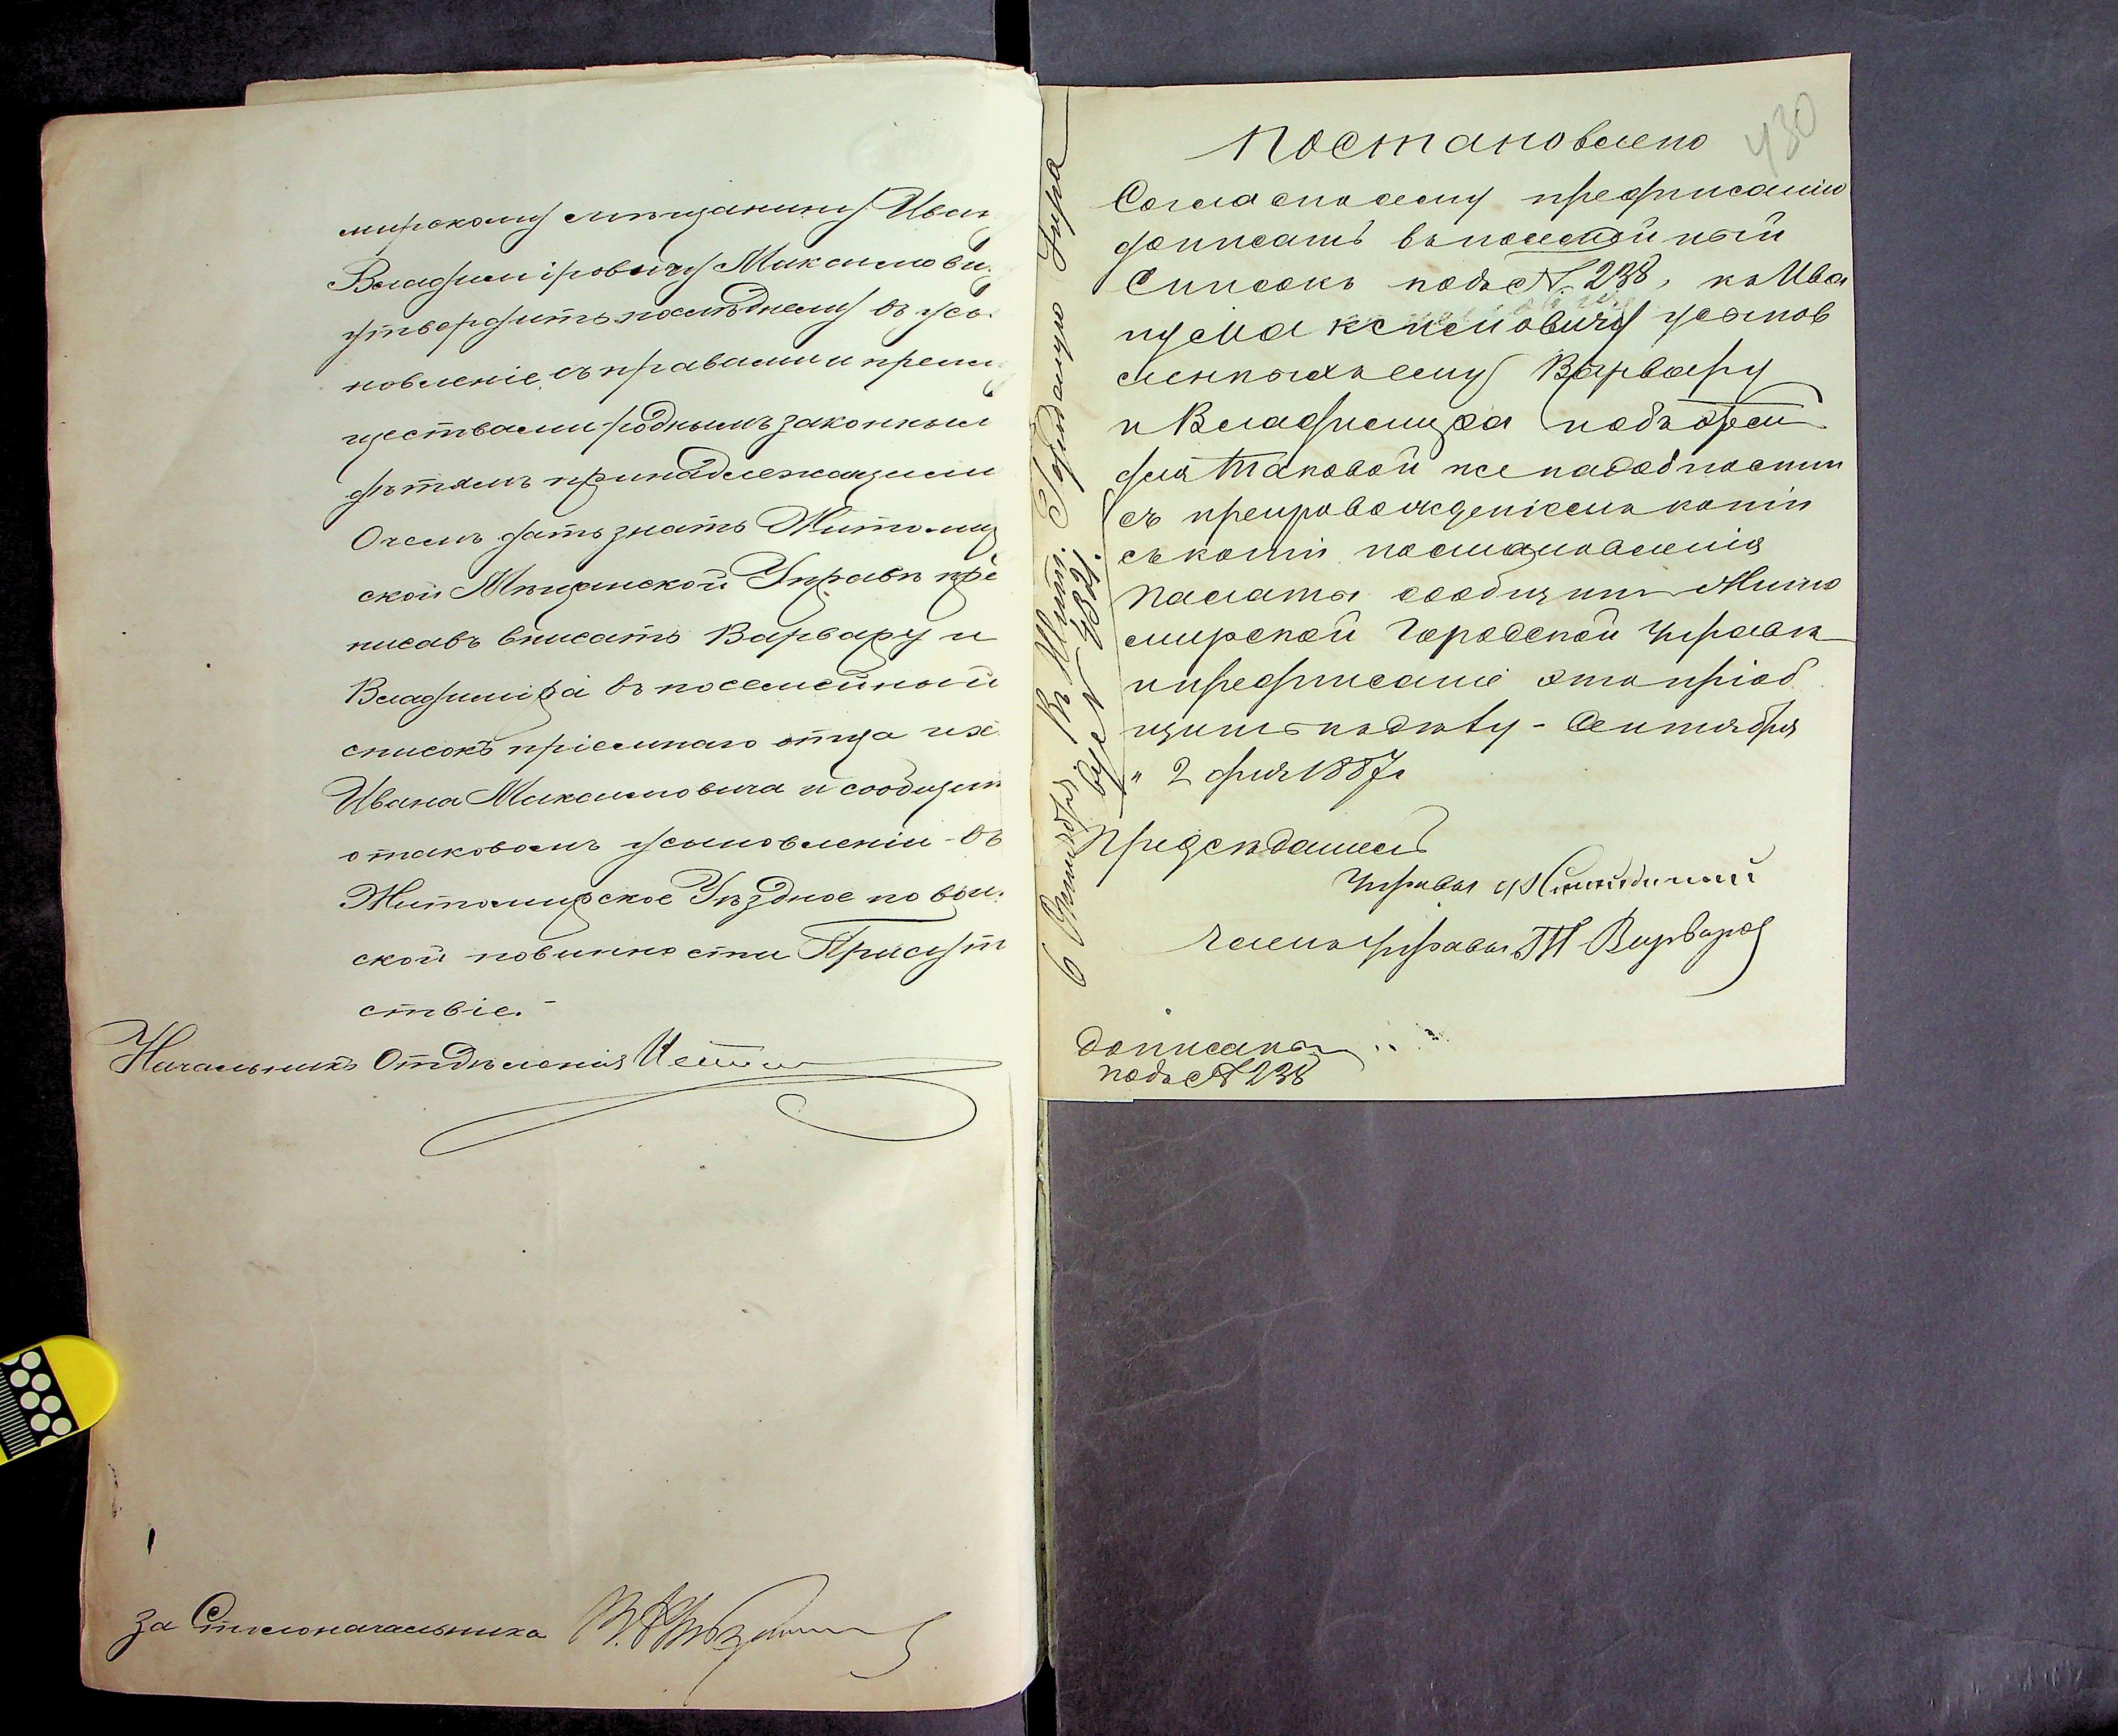 мирскому мѣщанину Иван
Владиміровичу Максимови
утвердить послѣднему въ усы
новленіе съ правами и преиму
ществами роднымъ законным
дѣтямъ принадлежащими
О чемъ дать знать Житомир
ской Мѣщанской Управѣ пре
писавъ вписать Варвару и
Владиміра въ посемейный
списокъ пріемнаго отца их
Ивана Максимовича и сообщить
о таковомъ усыновленіи въ
Житомирское Уѣздное по воин.
ской повинности Присут
ствіе.
Начальникъ Отдѣленія
За Столоначальника
430
Постановлено
Согласно сему предписанію
дописать въ посемейный
Списокъ подъ № 238, къ Ива
ну Максимовичу усынов
ленныхъ ему Варвару
и Владимира подъ
для таковой же надобности
съ препровожденіемъ копіи
съ копіи постановленія
Палаты сообщить Жито
мирской Городской Управѣ
и предписаніе это пріоб
щить къ дѣлу - Сентября
" 2 дня 1887 г
Предсѣдатель
Управы
Членъ Управы Варваров
Дописаны
подъ № 238
6 Сентября въ Жит. Городскую Упра
ву №